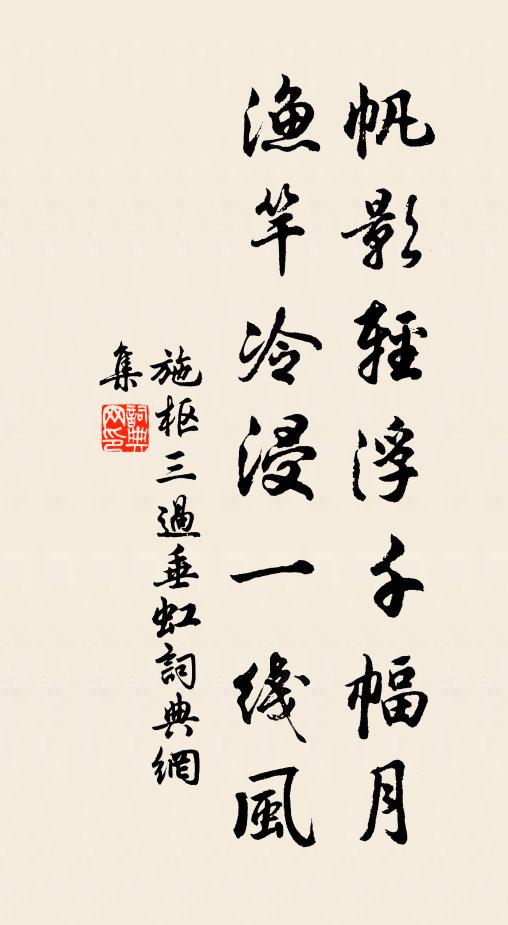 帆影輕浮千幅月
漁竿冷浸一线風
施枢三過垂虹詞典網
集
詞典
网印